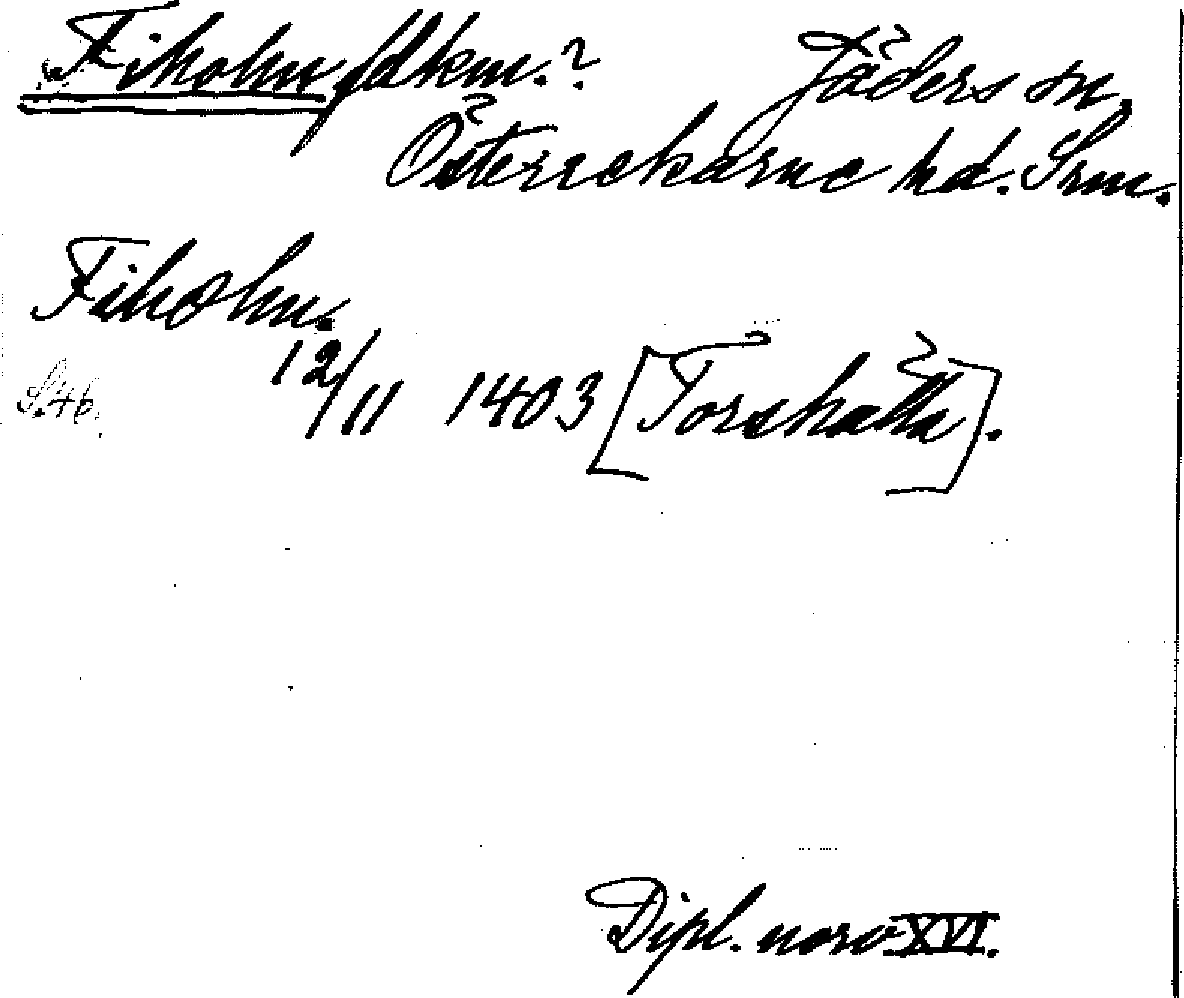 Fiholm fdkm.? Jäders sn,
Österrekarne hd. Srm.
Fiholm.
S. 46. 12/11 1403 [Torshälla].
Dipl. norv. XVI.